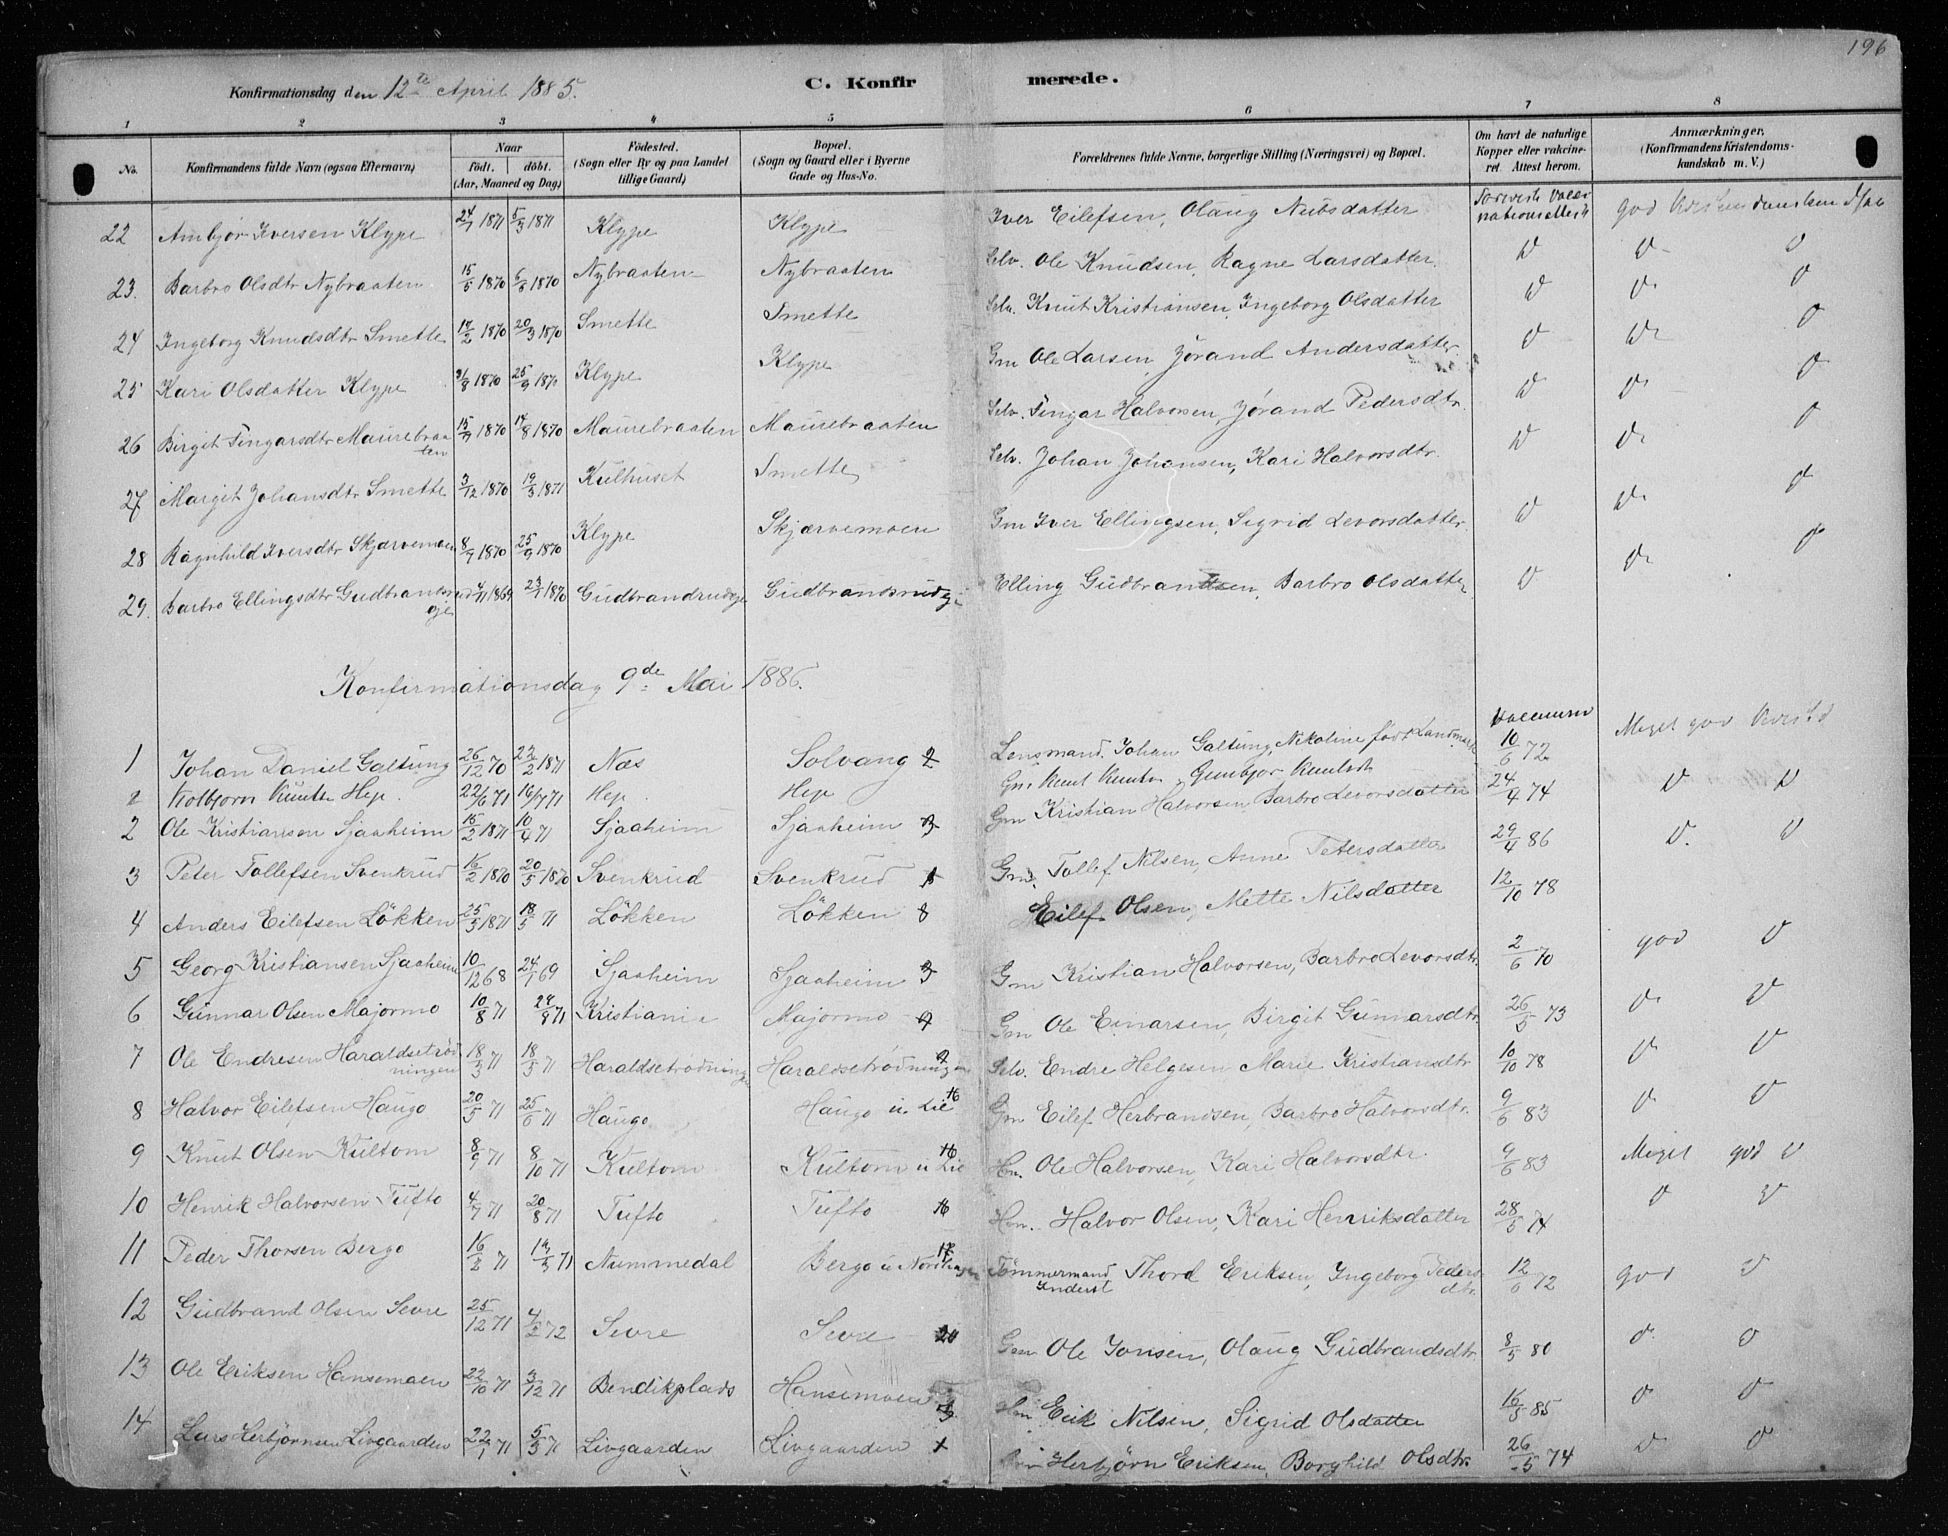 196
Konfirmationsdag den 12te April 1885. C. Konfirmerede.
1 2 3 4 5 6 7 8
No. Konfirmandens fulde Navn (ogsaa Efternavn) Naar født. døbt. (Aar, Maaned og Dag) Fødested. (Sogn eller By og paa Landet tillige Gaard) Bopæl. (Sogn og Gaard eller i Byerne Gade og Hus-No. Forældrenes fulde Navne, borgerlige Stilling (Næringsvei) og Bopæl. Om havt de naturlige Kopper eller vakcineret. Attest herom. Anmærkninger, (Konfirmandens Kristendomskundskab m. V.)
22 Ambjør Iversen Klype 24/1 1871 5/3 1871 Klype Klype Iver Eilefsen, Olaug Nubsdatter god
23. Barbro Olsdtr Nybraaten 15/5 1870 6/6 1870 Nybraaten Nybraaten Selv. Ole Knudsen, Ragne Larsdatter.
24 Ingeborg Knudsdtr Smette 17/2 1870 20/3 1870 Smette Smette Selv. Knut Kristiansen, Ingeborg Olsdatter
25 Kari Olsdatter Klype 31/8 1870 25/9 1870 Klype Klype Gm Ole Larsen, Jørand Andersdatter
26 Birgit Fingarsdtr Maurebraaten 15/7 1870 14/8 1870 Maurebraaten Maurebraaten Selv. Fingar Halvorsen, Jørand Pedersdtr.
27 Margit Johansdtr Smette 3/12 1870 19/3 1871 Kulhuset Smette Selv. Johan Johansen, Kari Halvorsdtr.
28 Ragnhild Iversdtr Skjærvemoen 8/9 1870 25/9 1870 Klype Skjærvemoen Gm Iver Ellingsen, Sigrid Levorsdatter
29. Barbro Ellingsdtr Gudbrandsrudeje 4/11 1869 23/1 1870 Gudbrandrudeje Gudbrandsrudej Elling Gudbrandsen, Barbro Olsdatter
Konfirmationsdag 9de Mai 1886.
1 Johan Daniel Galtung 26/12 70 22/2 1871 Næs Solvang 2 Lensmand. Johan Galtung, Nikoline født Landmark 10/6 72 Meget god
2 Kolbjørn Knuts. Hej. 22/6 71 16/7 71 Hej. Hej Gm. Knut Knuts. Gunbjør Knutsdt
2 Ole Kristiansen Sjaaheim 15/2 1871 10/4 71 Sjaaheim Sjaaheim 3 Gm Kristian Halvorsen Barbro Levorsdatter 24/4 74
3 Peter Tollefsen Svenkrud 16/2 1870 20/5 1870 Svenkrud Svenkrud Gm. Tollef Nilsen, Anne Petersdatter 29/4 86
4 Anders Eilefsen Løkken 25/3 1871 18/5 71 Løkken Løkken 8 Eilef Olsen, Mette Nilsdatter 12/10 78
5 Georg Kristiansen Sjaaheim 10/12 68 24/1 69 Sjaaheim Sjaaheim 3 Gm Kristian Halvorsen, Barbro Levorsdtr. 2/6 70 god
6 Gunnar Olsen Majormo 10/8 71 24/9 71 Kristiania Majormo Gm Ole Einarsen, Birgit Gunnarsdtr. 26/5 73
7 Ole Endresen Haraldsetrødningen 18/3 71 18/5 71 Haraldsetrødninge Haraldsetrødningen Selv. Endre Helgesen Marie Kristiansdtr 10/10 78
8 Halvor Eilefsen Haugo 20/5 71 25/6 71 Haugo Haugo u. Lie 16 Gm Eilef Herbrandsen, Barbro Halvorsdtr. 9/6 83
9 Knut Olsen Kultom 8/9 71 8/10 71 Kultom Kultom u Lie 16 Hm. Ole Halvorsen, Kari Halvorsdtr. 9/6 83 Meget god
10 Henrik Halvorsen Tufto 4/7 71 20/8 71 Tufto Tufto 16 Hm. Halvor Olsen, Kari Henriksdatter 28/5 74
11 Peder Thorsen Bergo 16/2 71 19/3 71 Nummedal Bergo u Nordhagen Tømmermand Inderst Thord Eriksen, Ingeborg Pedersdtr. 12/6 72 god
12 Gudbrand Olsen Sevre 25/12 71 4/2 72 Sevre Sevre 20 Gm Ole Jonsen, Olaug Gudbrandsdtr. 8/5 80
13 Ole Eriksen Hansemoen 22/10 71 3/12 71 Bendikplads Hansemoen Hm Erik Nilsen, Sigrid Olsdatter 16/5 85
14 Lars Herbjørnsen Livgaarden 22/1 71 5/3 71 Livgaarden Livgaarden Herbjørn Eriksen, Borghild Olsdtr 26/5 74